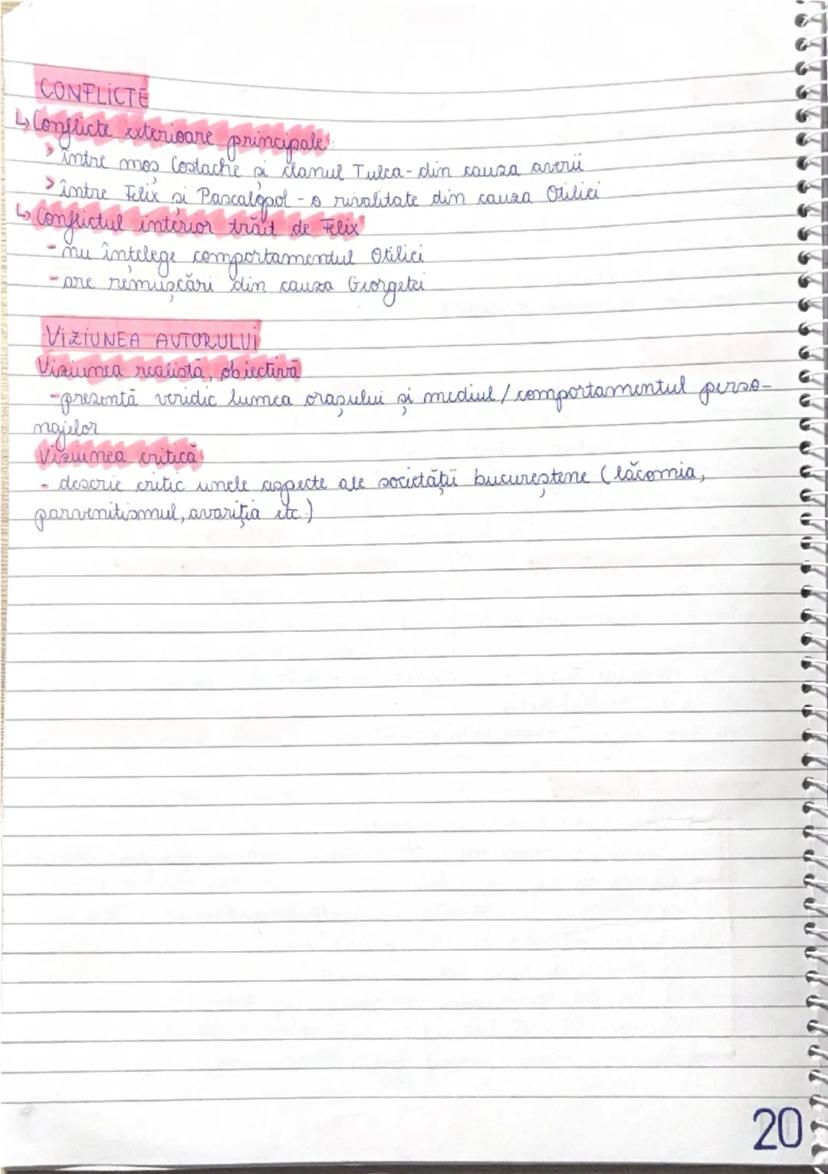 CONFLICTE
↳ Conflicte exterioare principale:
> între moș Costache și clanul Tulea - din cauza averii
> între Felix și Pascalopol - o rivalitate din cauza Otiliei
↳ Conflictul interior trăit de Felix
- nu înțelege comportamentul Otiliei
- are remușcări din cauza Georgetei
VIZIUNEA AUTORULUI
Viziunea realistă, obiectivă
- prezentă veridic lumea orașului și mediul / comportamentul perso-
najelor
Viziunea critică
- descrie critic unele aspecte ale societății bucureștene (lăcomia,
parvenitismul, avariția etc.)
20